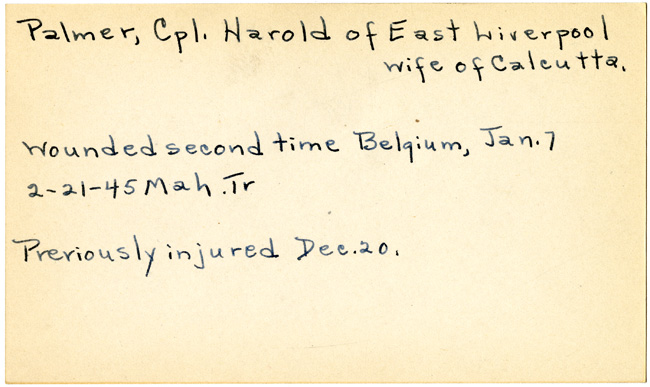 Palmer, Cpl. Harold of East Liverpool
wife of Calcutta.
Wounded second time Belgium, Jan. 7
2-21-45 Mah. Tr
Previously injured Dec. 20.